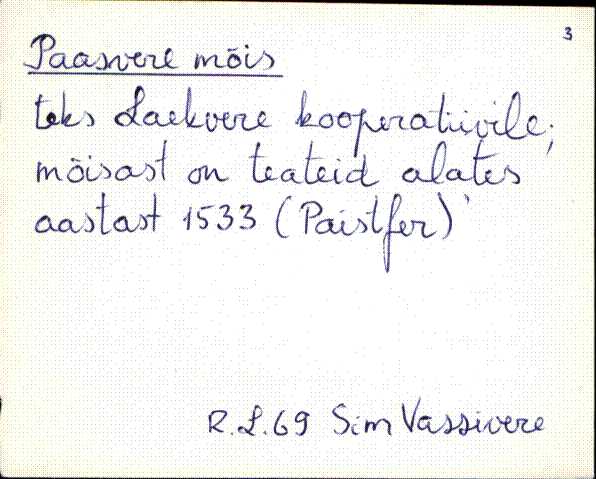 3
Paasvere mõis
teks Laekvere kooperatiivile;
mõisast on teateid alates
aastast 1533 (Paistfer)
R.L.69 Sim Vassivere